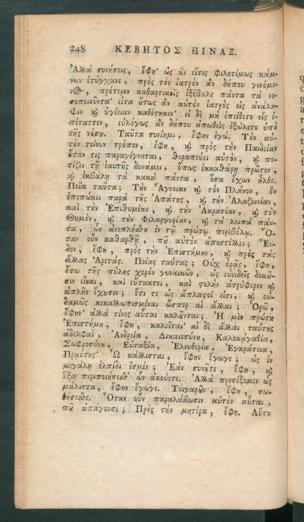 248 ΚΕΒΗΤΟΣ ΠΙΝΑΞ.
Ἀλλὰ συνήσεις, ἔφη· ὡς ἄν εἴ τις φιλοτίμως κάμ-
νων ἐτύγχανε, πρὸς τὸν ἰατρὸν ἂν δήπου γενόμε-
νος, πρότερον καθαρτικοῖς ἐξέβαλε πάντα τὰ νο-
σοποιοῦντα· εἶτα οὕτως ἂν αὐτὸν ἰατρὸς εἰς ἀνάλη-
ψιν καὶ ὑγίειαν κατέστησεν· εἰ δὲ μὴ ἐπείθετο οἷς ἐ-
πέταττεν, εὐλόγως ἂν δήπου ἀπωσθεὶς ἐξώλετο ὑπὸ
τῆς νόσου. Ταῦτα συνίημι, ἔφην ἐγώ. Τὸν αὐ-
τὸν τοίνυν τρόπον, ἔφη, καὶ πρὸς τὴν Παιδείαν
ὅταν τις παραγένηται, θεραπεύει αὐτὸν, καὶ πο-
τίζει τῇ ἑαυτῆς δυνάμει, ὅπως ἐκκαθάρῃ πρῶτον,
καὶ ἐκβάλῃ τὰ κακὰ πάντα, ὅσα ἔχων ἦλθε.
Ποῖα ταῦτα; Τὴν Ἄγνοιαν καὶ τὸν Πλάνον, ὃν
ἐπεπώκει παρὰ τῆς Ἀπάτης, καὶ τὴν Ἀλαζονείαν,
καὶ τὴν Ἐπιθυμίαν, καὶ τὴν Ἀκρασίαν, καὶ τὸν
Θυμὸν, καὶ τὴν Φιλαργυρίαν, καὶ τὰ λοιπὰ πάν-
τα, ὧν ἀνεπλήσθη ἐν τῷ πρώτῳ περιβόλῳ. Ὅ-
ταν οὖν καθαρθῇ, ποῦ αὐτὸν ἀποστέλλει; Ἔν-
δον, ἔφη, πρὸς τὴν Ἐπιστήμην, καὶ πρὸς τὰς
ἄλλας Ἀρετάς. Ποίας ταύτας; Οὐχ ὁρᾷς, ἔφη,
ἔσω τῆς πύλης χορὸν γυναικῶν, ὡς εὐειδεῖς δοκοῦ-
σιν εἶναι, καὶ εὔτακτοι, καὶ στολὴν ἀτρύφερον καὶ
ἁπλῆν ἔχουσι; ἔτι τε ὡς ἄπλαστοί εἰσι, καὶ οὐ-
δαμῶς κεκαλλωπισμέναι ὥσπερ αἱ ἄλλαι; Ὁρῶ,
ἔφην· ἀλλὰ τίνες αὗται καλοῦνται; Ἡ μὲν πρώτη
Ἐπιστήμη, ἔφη, καλεῖται· αἱ δὲ ἄλλαι ταύτης
ἀδελφαὶ, Ἀνδρεία, Δικαιοσύνη, Καλοκἀγαθία,
Σωφροσύνη, Εὐταξία, Ἐλευθερία, Ἐγκράτεια,
Πραότης. Ὦ κάλλισται, ἔφην ἔγωγε, ὡς ἐν
μεγάλῃ ἐλπίδι ἐσμέν; Ἐὰν συνῆτε, ἔφη, καὶ
ἕξιν περιποιήσησθε ὧν ἀκούετε. Ἀλλὰ προσέξομεν ὡς
μάλιστα, ἔφην ἔγωγε. Τοιγαροῦν, ἔφη, σω-
θήσεσθε. Ὅταν οὖν παραλάβωσιν αὐτὸν αὗται,
ποῦ ἀπάγουσι; Πρὸς τὴν μητέρα, ἔφη. Αὕτη